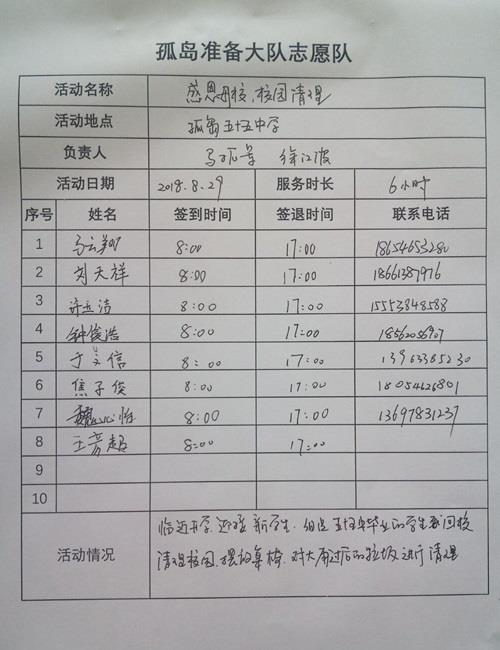 孤岛准备大队志愿队
活动名称 感恩母校、校园清理
活动地点 孤岛五十五中学
负责人 徐江波
活动日期 2018.8.29 服务时长 6小时
序号 姓名 签到时间 签退时间 联系电话
1 马云翔 8:00 17:00 18654653280
2 刘天祥 8:00 17:00 18661387976
3 许立洁 8:00 17:00 15553848588
4 钟俊浩 8:00 17:00 18562056907
5 于文信 8:00 17:00 13963385230
6 焦子俊 8:00 17:00 18054626801
7 魏心怡 8:00 17:00 13697831237
8 王彦超 8:00 17:00
9
10
临近开学,迎接新学生.组织五十五中毕业的学生们回校
活动情况 清理校园、摆放桌椅.对大雨过后的垃圾进行清理